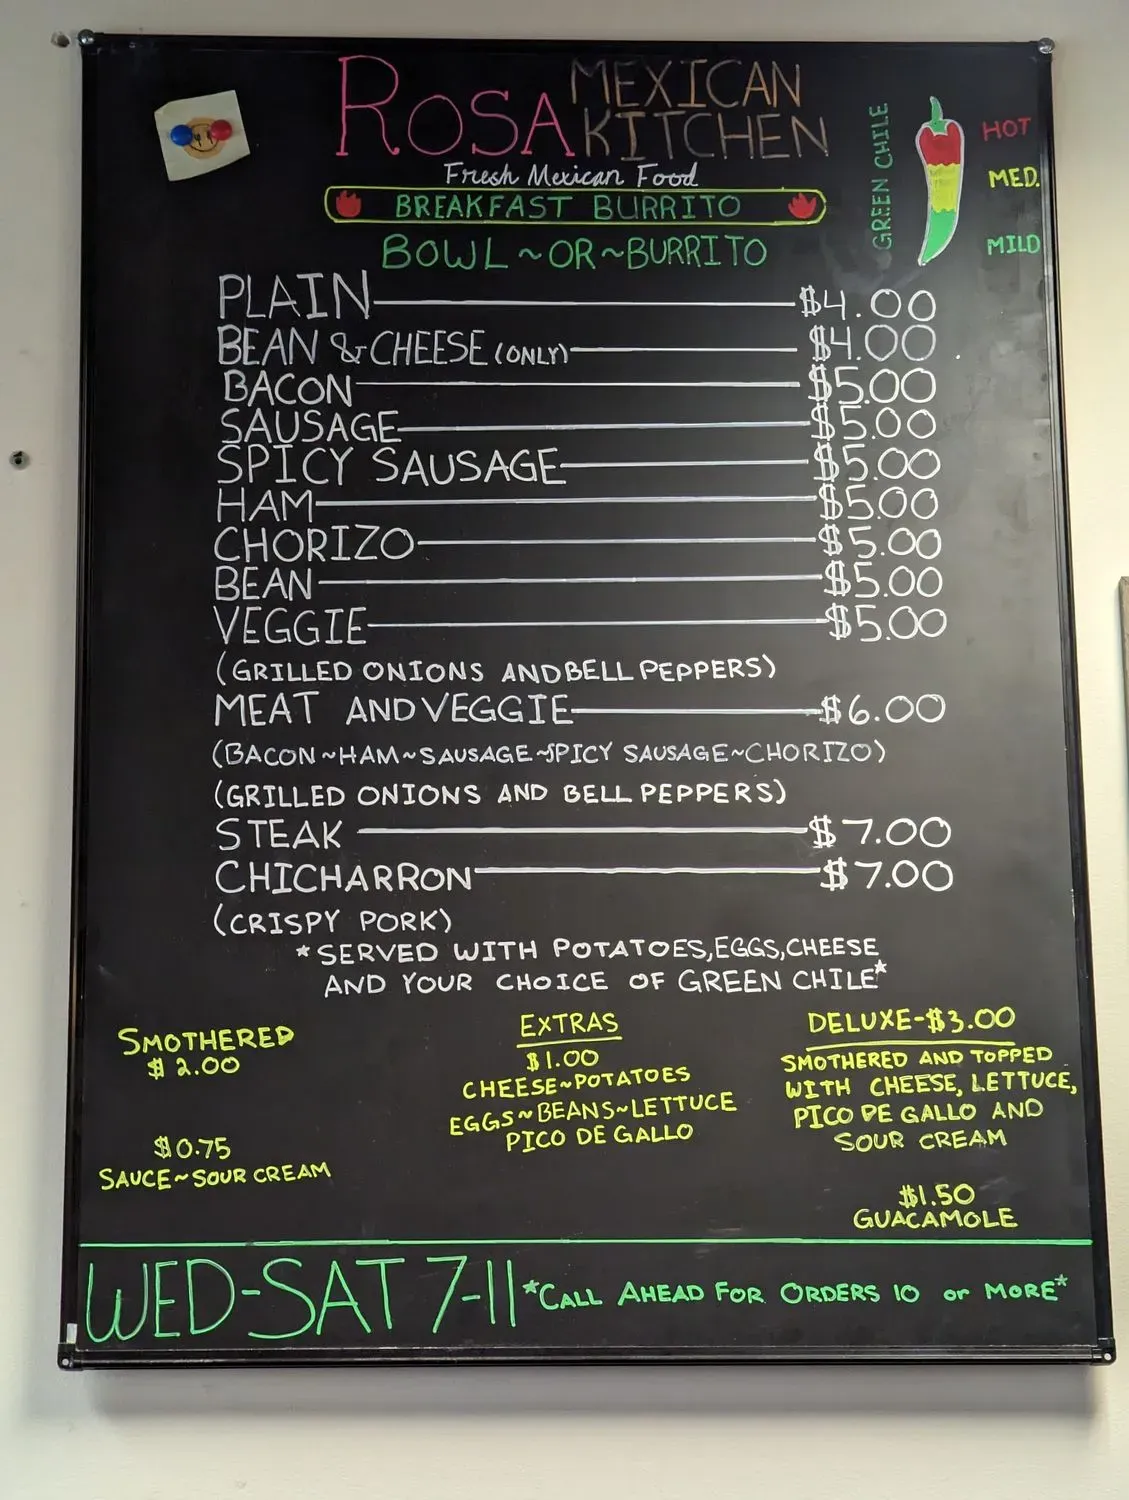 ROSA MEXICAN KITCHEN
Fresh Mexican Food
BREAKFAST BURRITO
BOWL~OR~BURRITO
GREEN CHILE
HOT
MED.
MILD
PLAIN $4.00
BEAN & CHEESE (ONLY) $4.00
BACON $5.00
SAUSAGE $5.00
SPICY SAUSAGE $5.00
HAM $5.00
CHORIZO $5.00
BEAN $5.00
VEGGIE $5.00
(GRILLED ONIONS AND BELL PEPPERS)
MEAT AND VEGGIE $6.00
(BACON~HAM~SAUSAGE~SPICY SAUSAGE~CHORIZO)
(GRILLED ONIONS AND BELL PEPPERS)
STEAK $7.00
CHICHARRON $7.00
(CRISPY PORK)
*SERVED WITH POTATOES, EGGS, CHEESE
AND YOUR CHOICE OF GREEN CHILE*
SMOTHERED
$2.00
$0.75
SAUCE~SOUR CREAM
EXTRAS
$1.00
CHEESE~POTATOES
EGGS~BEANS~LETTUCE
PICO DE GALLO
DELUXE-$3.00
SMOTHERED AND TOPPED
WITH CHEESE, LETTUCE,
PICO DE GALLO AND
SOUR CREAM
$1.50
GUACAMOLE
WED-SAT 7-11 *CALL AHEAD FOR ORDERS 10 or MORE*